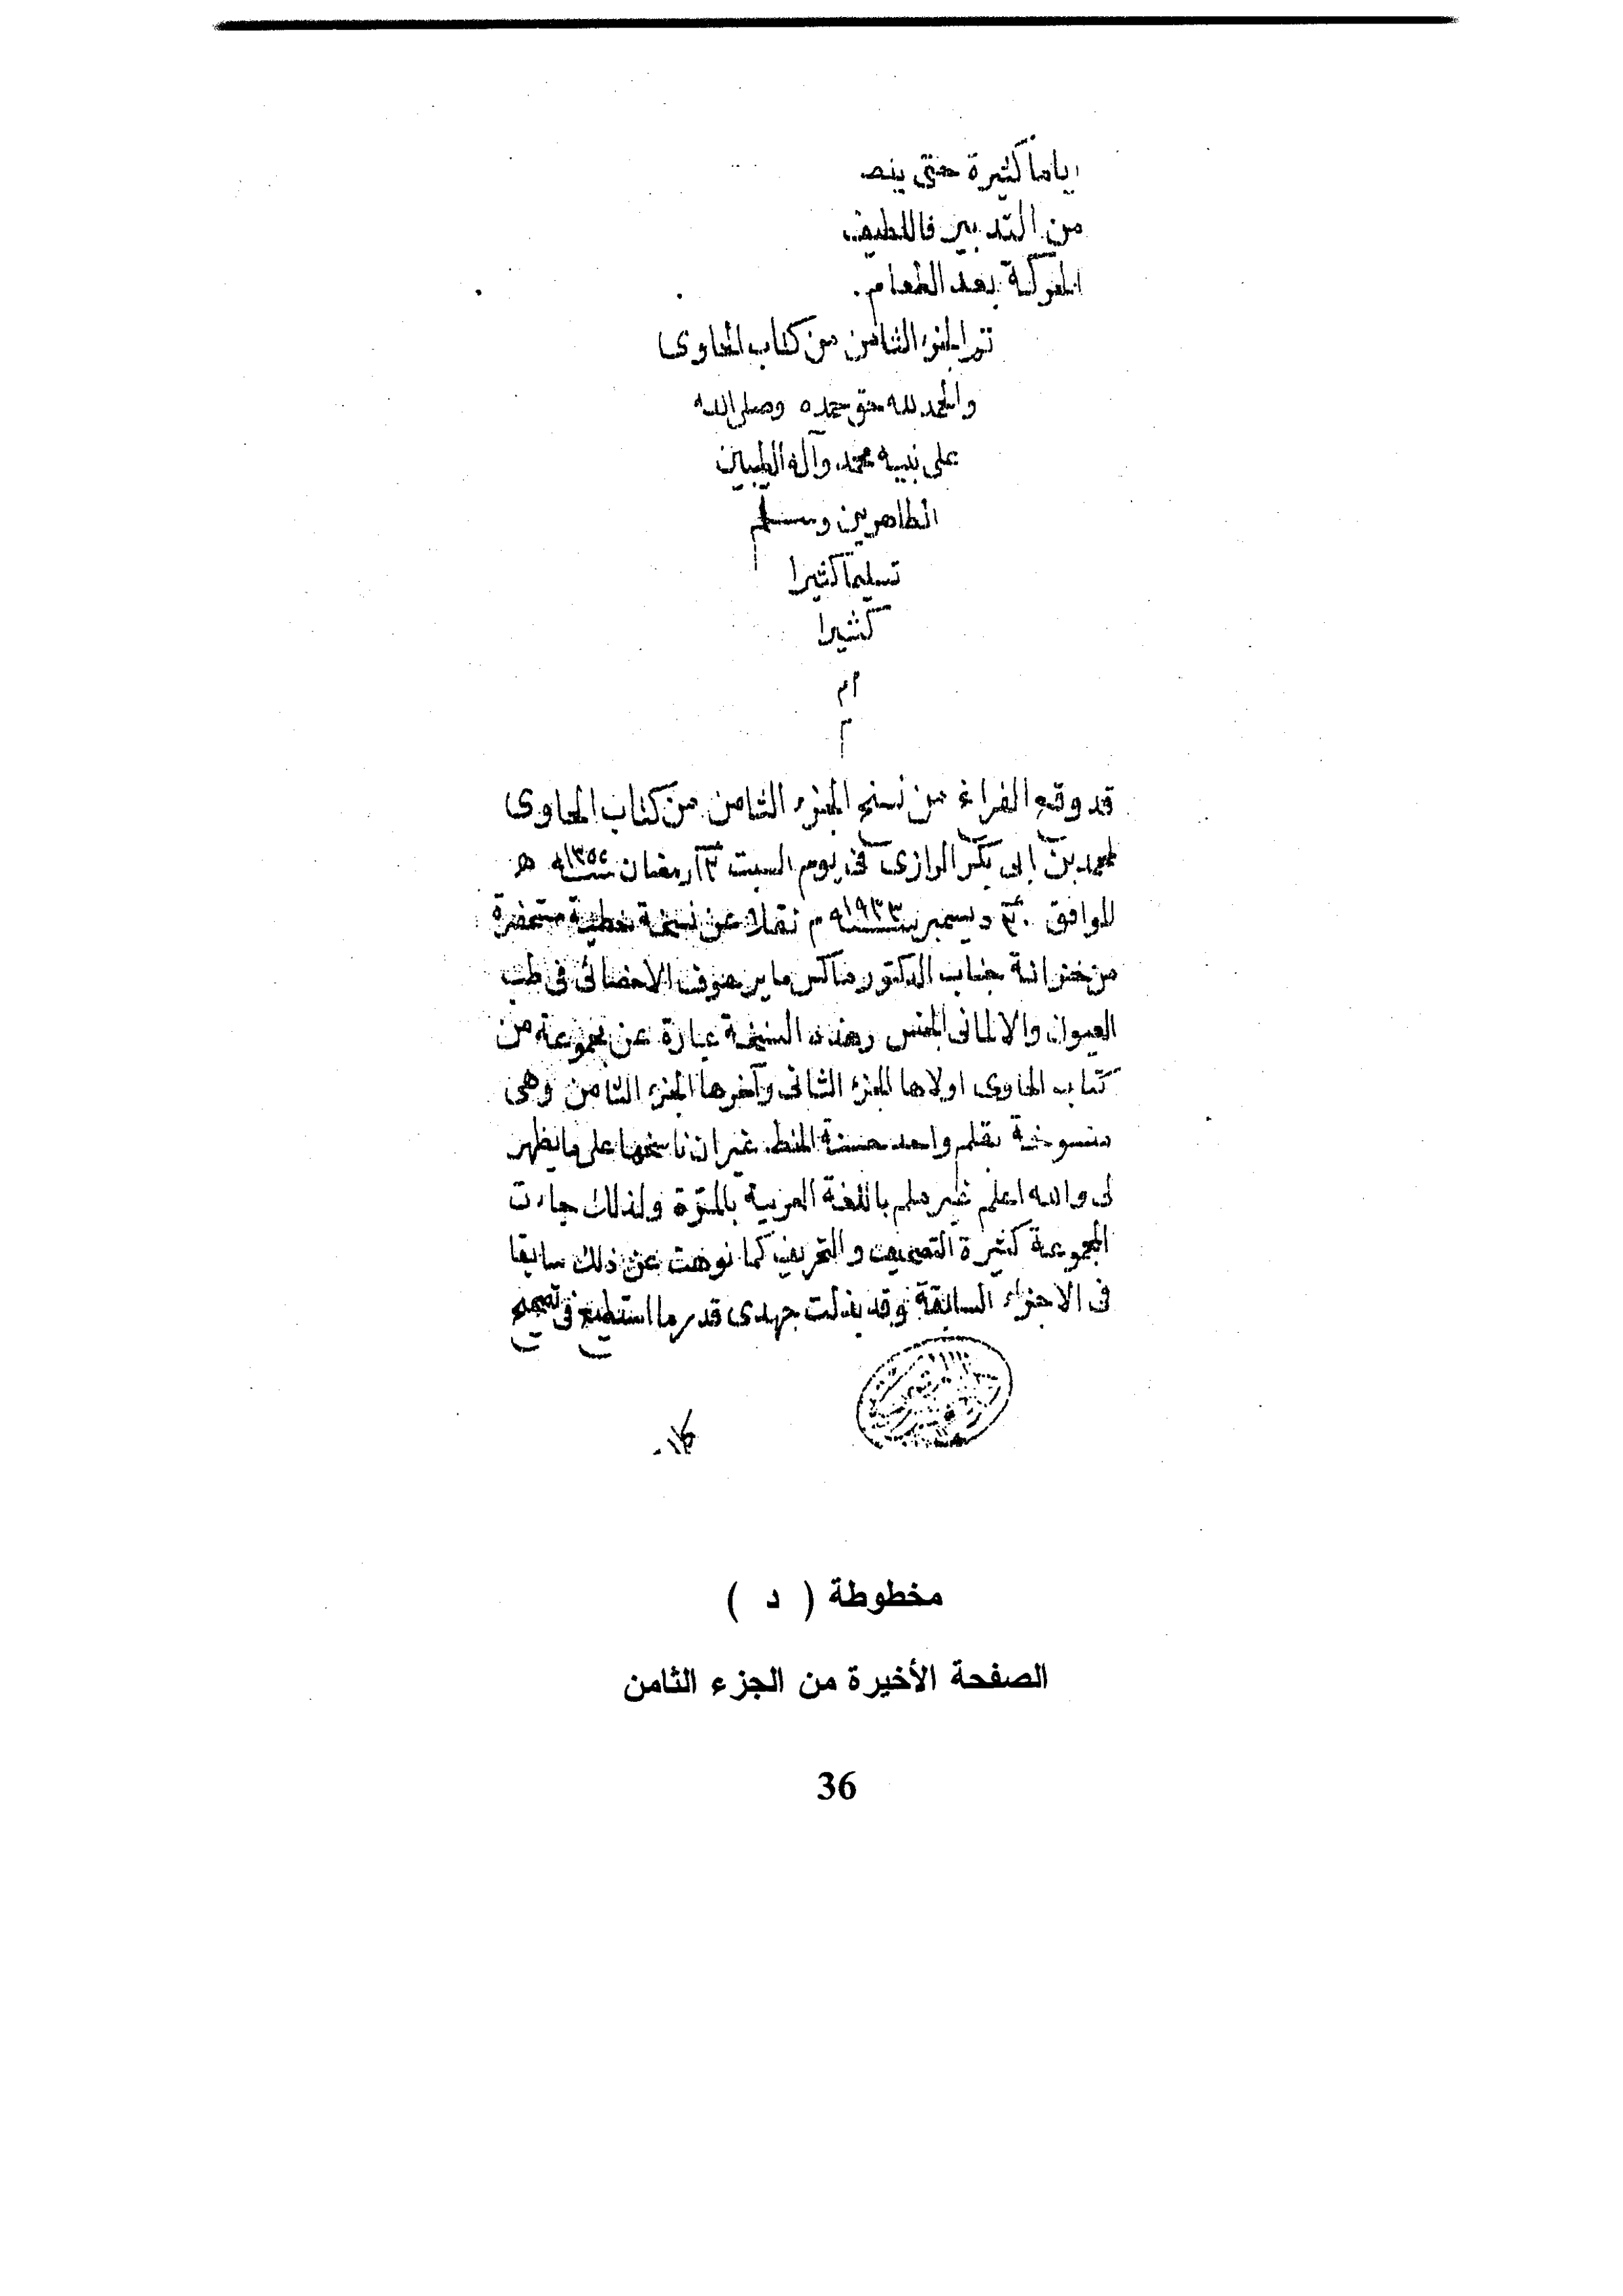 اياما كثيرة حتى ينص
من التدبير فاللطيف
الحركة بعد الطعام.
تم الجزء الثامن من كتاب الحاوى
والحمد لله حق حمده وصلى الله
على نبيه محمد وآله الطيبين
الطاهرين وسلم
تسليما كثيرا
كثيرا
ام
قد وقع الفراغ من نسخ الجزء الثامن من كتاب الحاوى
لمحمد بن ابى بكر الرازى فى يوم السبت رمضان سنة ه
الموافق ٣٠ ديسمبر سنة ١٩٣٣ م نقلا عن نسخة خطية مستحضرة
من خزانة جناب الدكتور ماكس مايرهوف الاخصائى فى طب
العيون والالمانى الجنس وهذه النسخة عبارة عن مجموعة من
كتاب الحاوى اولاها الجزء الثانى وآخرها الجزء الثامن وهى
منسوخة بقلم واحد حسنة الخط غير ان ناسخها على ما يظهر
لى والله اعلم غير ملم باللغة العربية بالمرة ولذلك جاءت
المجموعة كثيرة التصحيف والتحريف كما نوهت عن ذلك سابقا
فى الاجزاء السابقة وقد بذلت جهدى قدر ما استطيع فى تصحيح
مخطوطة ( د )
الصفحة الأخيرة من الجزء الثامن
36